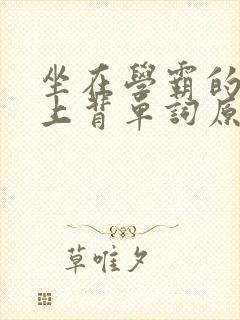 坐在學霸的
上背單詞原
草唯夕